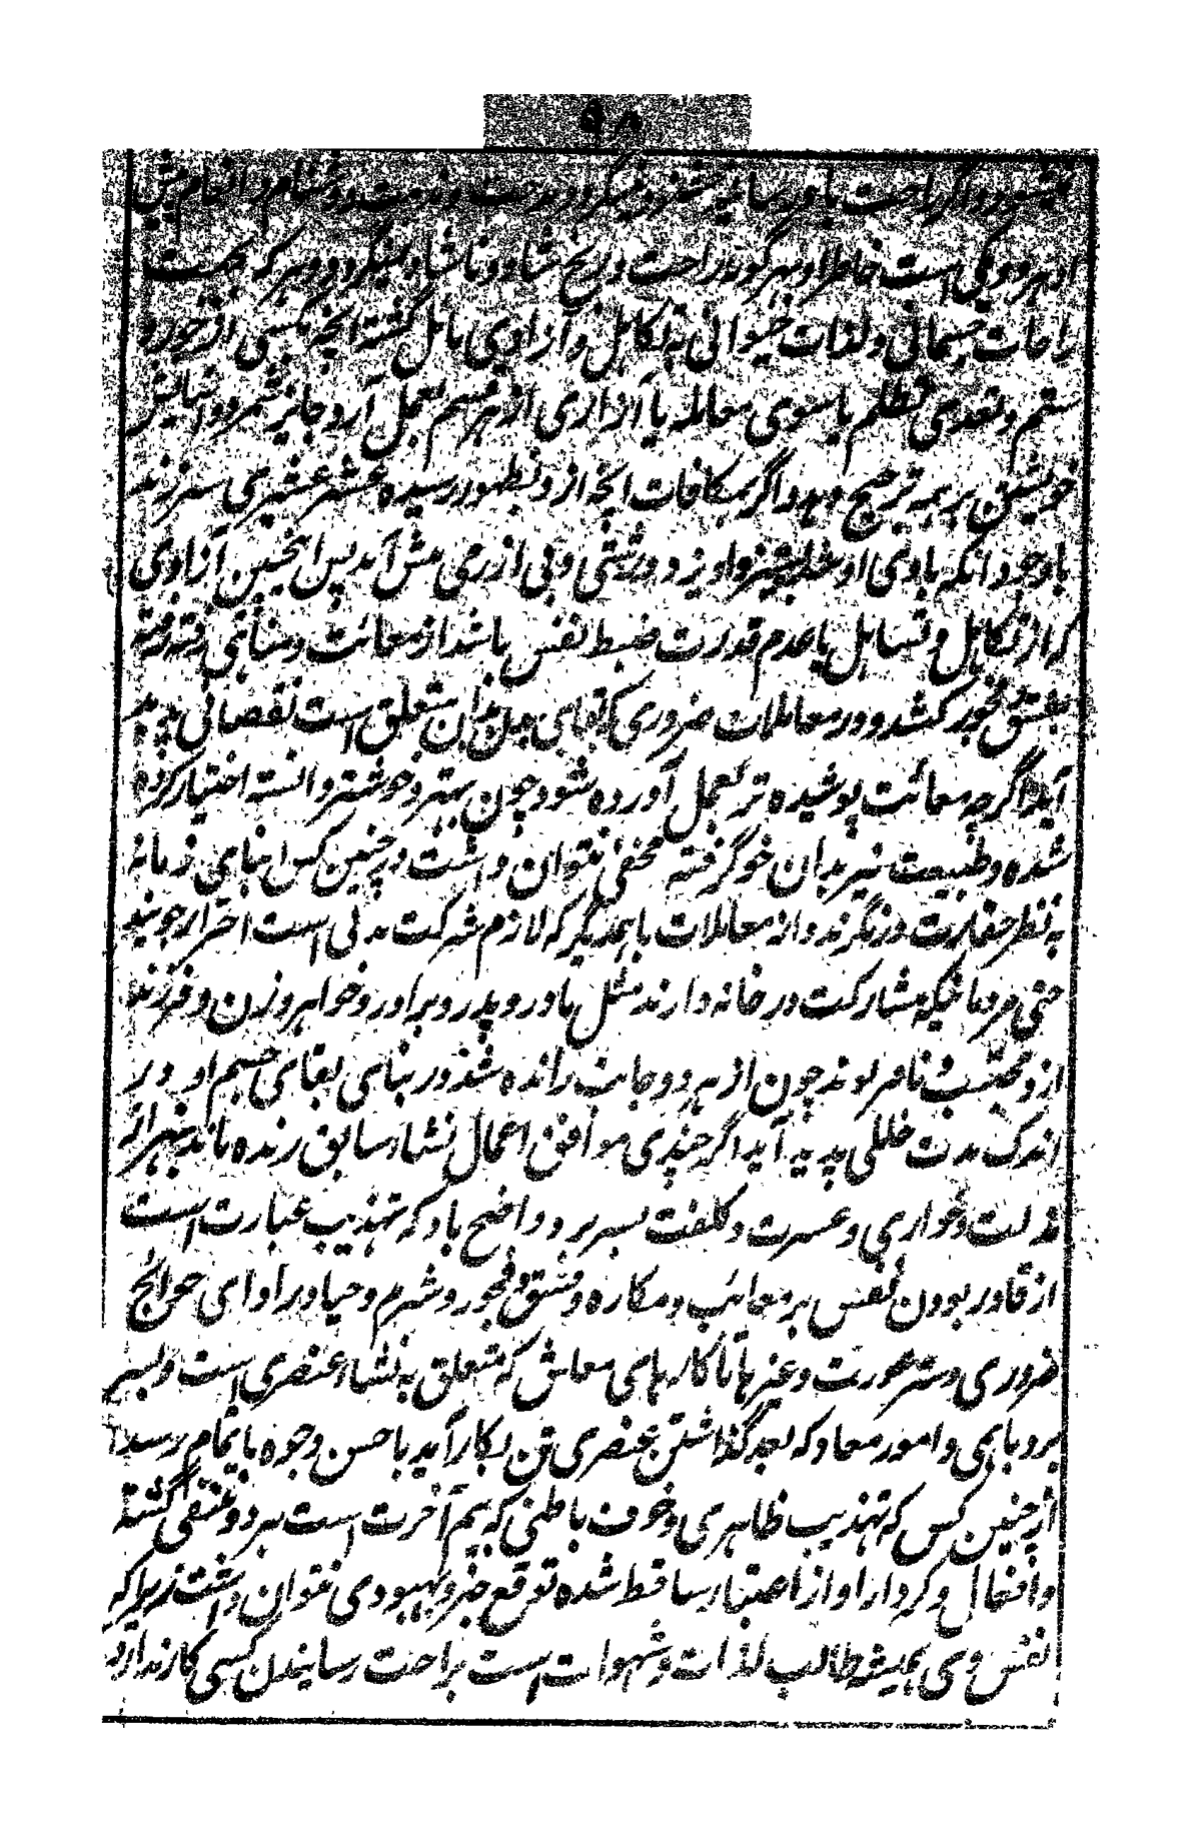 ۵۸
نمیشود و اگر راحت باو رسانید خشنود نمیگردد مدحت و مذمت و دشنام و انعام پیش
او هر دو یکی است خاطر او بهر گونه راحت و رنج شاد و ناشاد نمیگردد و هر که بجهت
راحات جسمانی و لذات حیوانی به تکاهل و آزادی مائل گشته آنچه بکسی از جور و
ستم و تعدی و تظلم یا سوی معامله یا آزاری از هر قسم بعمل آرد جایز شمرد و آسایش
خویشتن بر همه ترجیح دهد و اگر بمکافات آنچه از و بظهور رسیده عشر عشیری سر زند
باوجود آنکه بادی او غلبه ستیز و اویزد و درشتی و بی ازرمی پیش آید پس اینچنین آزادی
که از تکاهل و تساهل یا عدم قدرت ضبط نفس باشد از معائب و مناهی رفته رفته
بفسق و فجور کشد و در معاملات ضروری که بقای جان بدان متعلق است نقصانی پدید
آید اگرچه معائب پوشیده تر بعمل آورده شود چون بهتر و خوشتر دانسته اختیار کرده
شده و طبیعت نیز بدان خو گرفته مخفی نتوان داشت در چنین کس ابنای زمانه
به نظر حقارت در نگرند و از معاملات باهمدیگر که لازم شرکت مدنی است احتراز جویند
حتی مردمانیکه مشارکت در خانه دارند مثل مادر و پدر و برادر و خواهر و زن و فرزند
از و مجتنب و نافر بوند چون از هر دو جانب رانده شد در بنای بقای جسم او در
اندک مدت خللی پدید آید اگر چندی موافق اعمال نشاء سابق زنده ماند بهزار
مذلت و خواری و عسرت و کلفت بسر برد و واضح باد که تهذیب عبارت است
از قادر بودن نفس بر معائب و مکاره و فسق و فجور و شرم و حیا در ادای حوائج
ضروری و ستر عورت و غیرها تا کارهای معاش که متعلق به نشاء عنصری است و بسر
برد باهمی و امور معاد که بعد گذاشتن عنصری تن بکار آید باحسن وجوه باتمام رسد
از چنین کس که تهذیب ظاهری و خوف باطنی که بیم آخرت است هر دو منتفی گشته
و افعال و کردار او از اعتبار ساقط شده توقع خیر و بهبودی نتوان داشت زیرا که
نفس وی همیشه طالب لذات و شهوات است براحت رسانیدن کسی کار ندارد